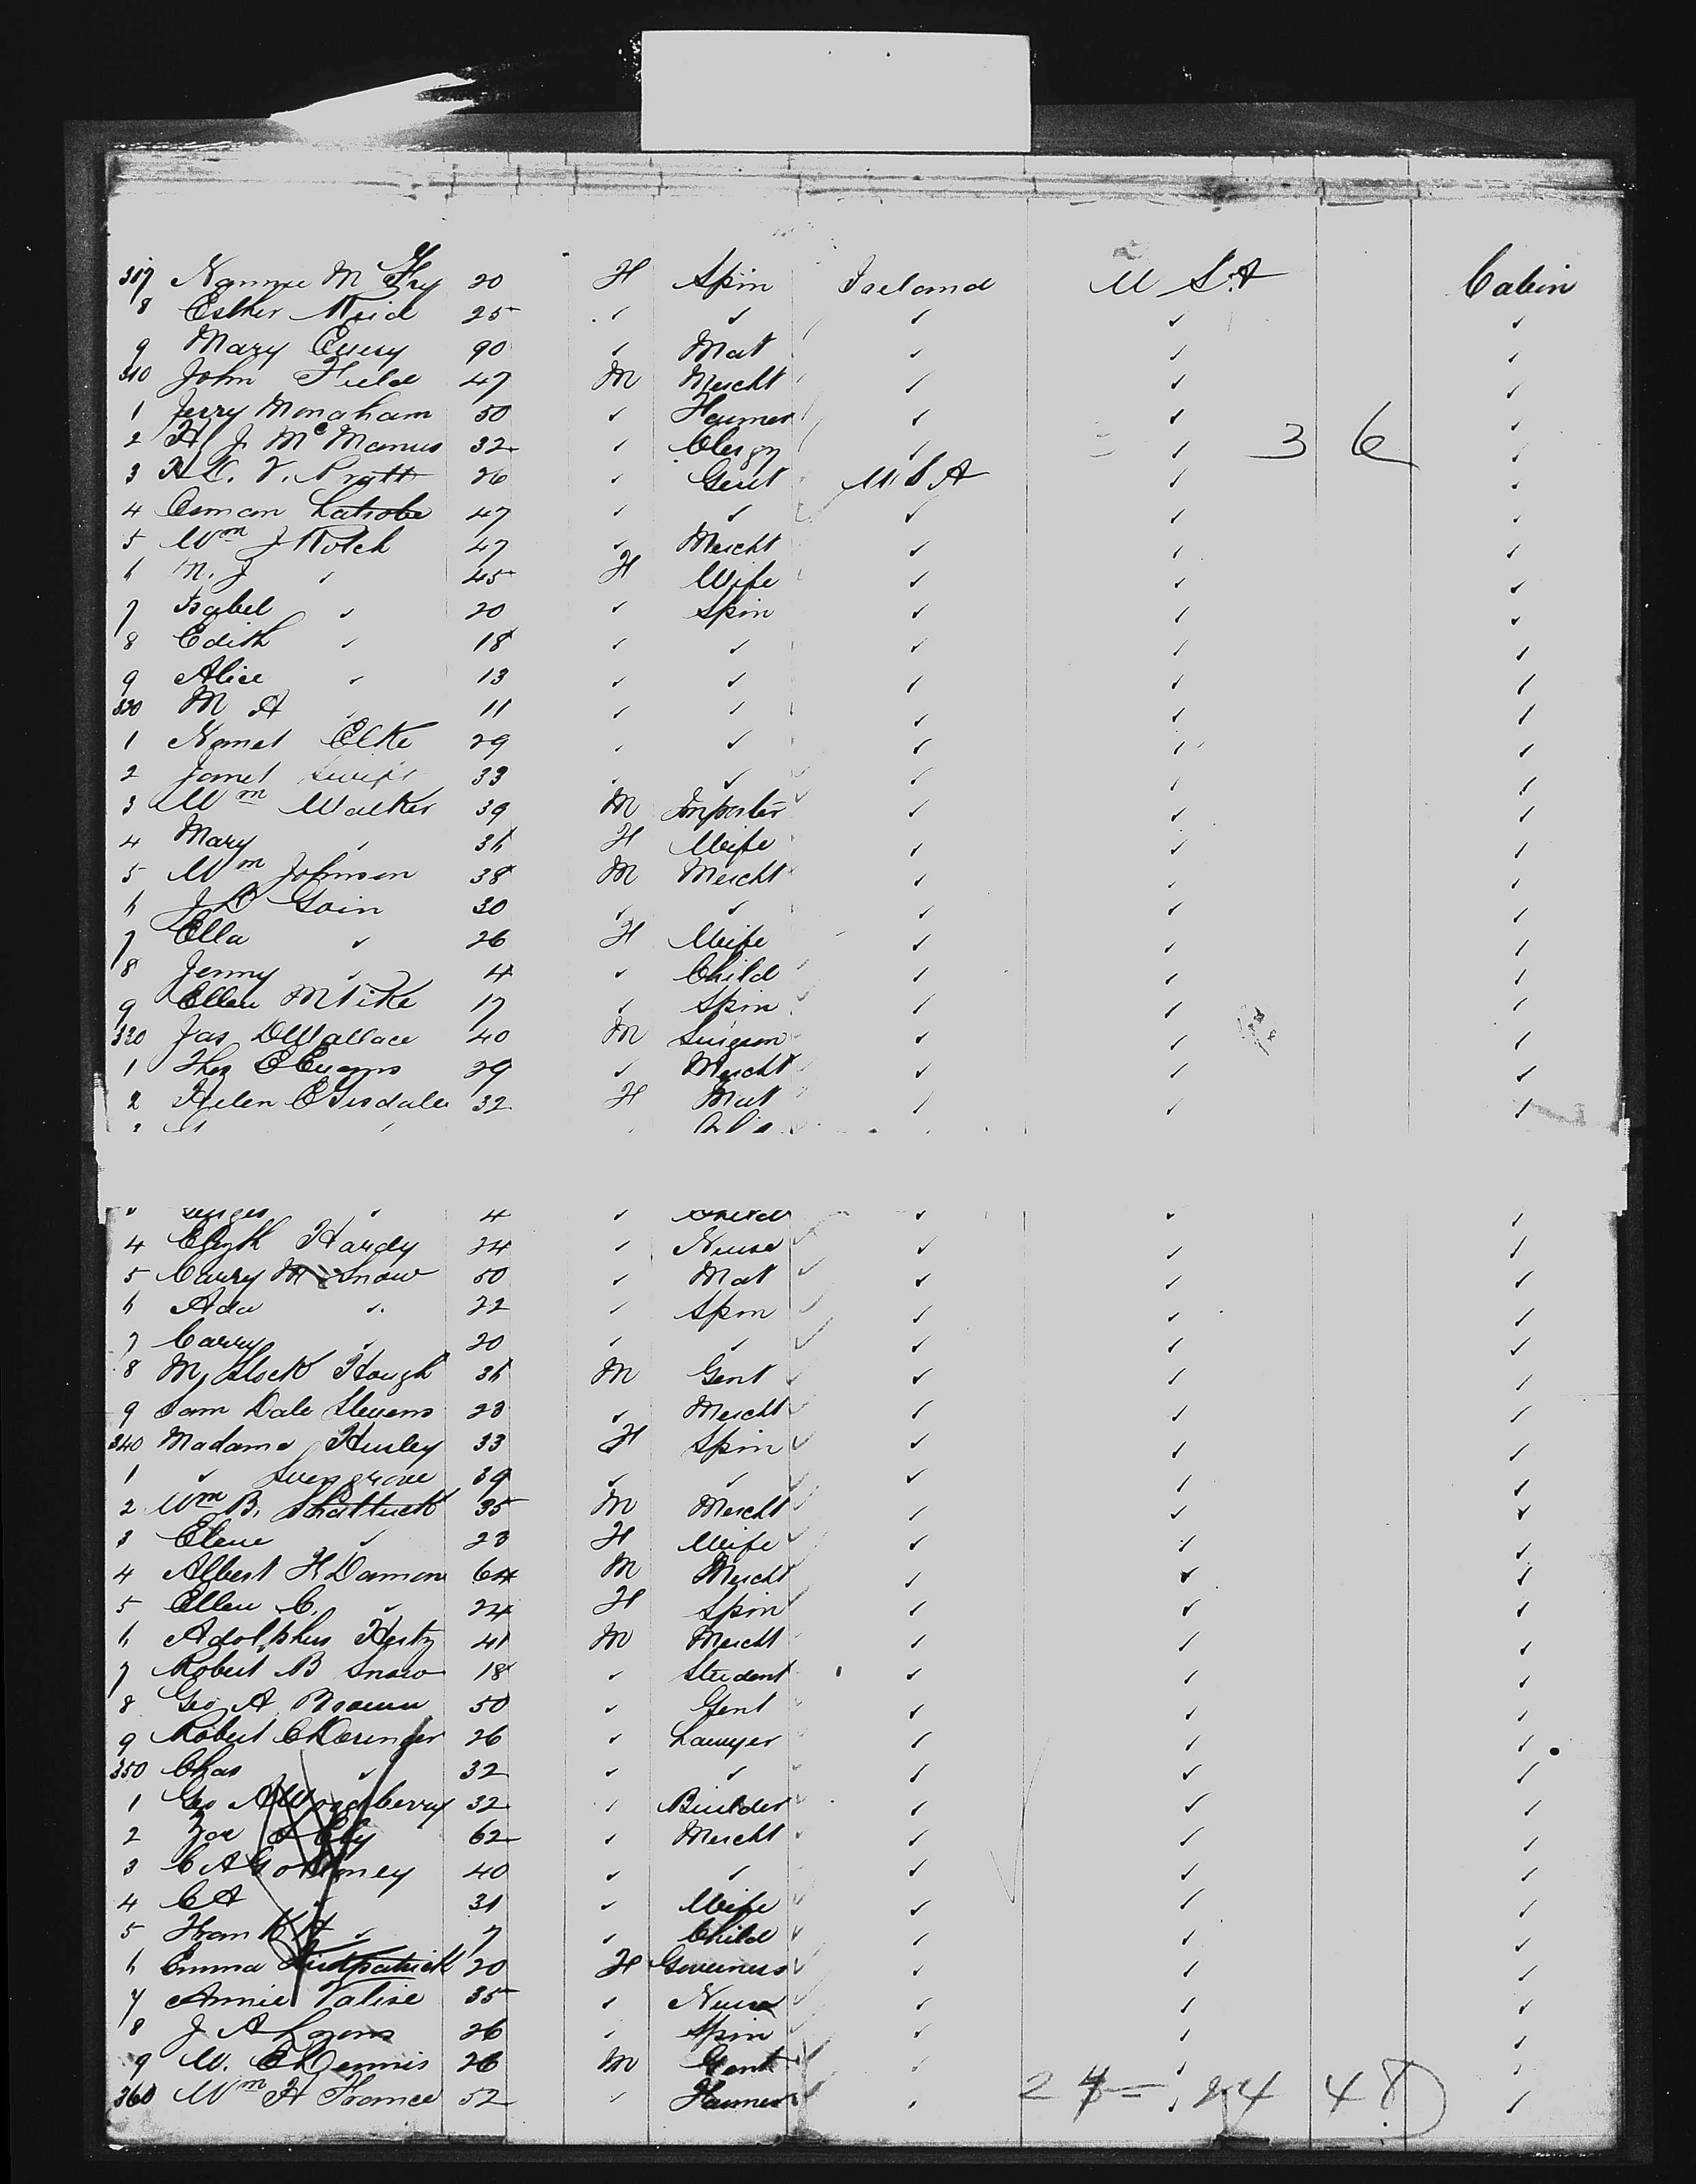 307 Nannie M Fry 20 F Spin Ireland U S.A Cabin
8 Esther Reid 25 ✓ ✓ ✓ ✓ ✓
9 Mary 90 ✓ Mat ✓ ✓ ✓
310 John Field 47 M Mercht ✓ ✓ ✓
1 Jerry Monaham 50 ✓ Farmer ✓ ✓ ✓
2 H J McManus 32 ✓ Clergy ✓ ✓ 3 6 ✓
3 V. Pratt 26 ✓ Gent U S A ✓ ✓
4 Osman Latrobe 47 ✓ ✓ ✓ ✓ ✓
5 Wm J Rotch 47 ✓ Mercht ✓ ✓ ✓
6 M. J ✓ 45 F Wife ✓ ✓ ✓
7 Isabel ✓ 20 ✓ Spin ✓ ✓ ✓
8 Edith ✓ 18 ✓ ✓ ✓ ✓ ✓
9 Alice ✓ 13 ✓ ✓ ✓ ✓ ✓
320 M A ✓ 11 ✓ ✓ ✓ ✓ ✓
1 29 ✓ ✓ ✓ ✓ ✓
2 Janet Swift 33 ✓ ✓ ✓ ✓ ✓
3 Wm Walker 39 M Importer ✓ ✓ ✓
4 Mary ✓ 36 F Wife ✓ ✓ ✓
5 Wm Johnson 38 M Mercht ✓ ✓ ✓
6 J B Goin 30 ✓ ✓ ✓ ✓ ✓
7 Ella ✓ 26 F Wife ✓ ✓ ✓
8 Jenny ✓ 4 ✓ Child ✓ ✓ ✓
9 Ellen M Pike 17 ✓ Spin ✓ ✓ ✓
320 Jas D Wallace 40 M Surgeon ✓ ✓ ✓
1 Thos C Evans 29 ✓ Mercht ✓ ✓ ✓
2 Helen C Tisdale 32 F Mat ✓ ✓ ✓
4 ✓ ✓ ✓ ✓
4 Elizth Hardy 24 ✓ Nurse ✓ ✓ ✓
5 Carry M Snow 50 ✓ Mat ✓ ✓ ✓
6 Ada ✓ 22 ✓ Spin ✓ ✓ ✓
7 Carry ✓ 20 ✓ ✓ ✓ ✓ ✓
8 Hough 36 M Gent ✓ ✓ ✓
9 Sam Dale Stevens 23 ✓ Mercht ✓ ✓ ✓
340 Madame Hurley 33 F Spin ✓ ✓ ✓
1 ✓ 39 ✓ ✓ ✓ ✓ ✓
2 Wm B. Shattuck 35 M Mercht ✓ ✓ ✓
3 ✓ 23 F Wife ✓ ✓ ✓
4 Albert H Damon 64 M Mercht ✓ ✓ ✓
5 Ellen C. ✓ 24 F Spin ✓ ✓ ✓
6 Adolphus Hertz 41 M Mercht ✓ ✓ ✓
7 Robert B Snow 18 ✓ Student ✓ ✓ ✓
8 Geo A Brown 50 ✓ Gent ✓ ✓ ✓
9 Robert C Deringer 26 ✓ Lawyer ✓ ✓ ✓
350 Chas ✓ 32 ✓ ✓ ✓ ✓ ✓
1 Geo A Woodberry 32 ✓ Builder ✓ ✓ ✓
2 Ely 62 ✓ Mercht ✓ ✓ ✓
3 C A 40 ✓ ✓ ✓ ✓ ✓
4 C A ✓ 31 ✓ Wife ✓ ✓ ✓
5 Frank H ✓ 7 ✓ Child ✓ ✓ ✓
6 Emma Kirkpatrick 20 F Governess ✓ ✓ ✓
7 Annie Valise 35 ✓ Nurse ✓ ✓ ✓
8 J A Lyons 26 ✓ Spin ✓ ✓ ✓
9 W. C Dennis 26 M Gent ✓ ✓ ✓
360 Wm H France 52 ✓ Farmer ✓ 24 48 ✓